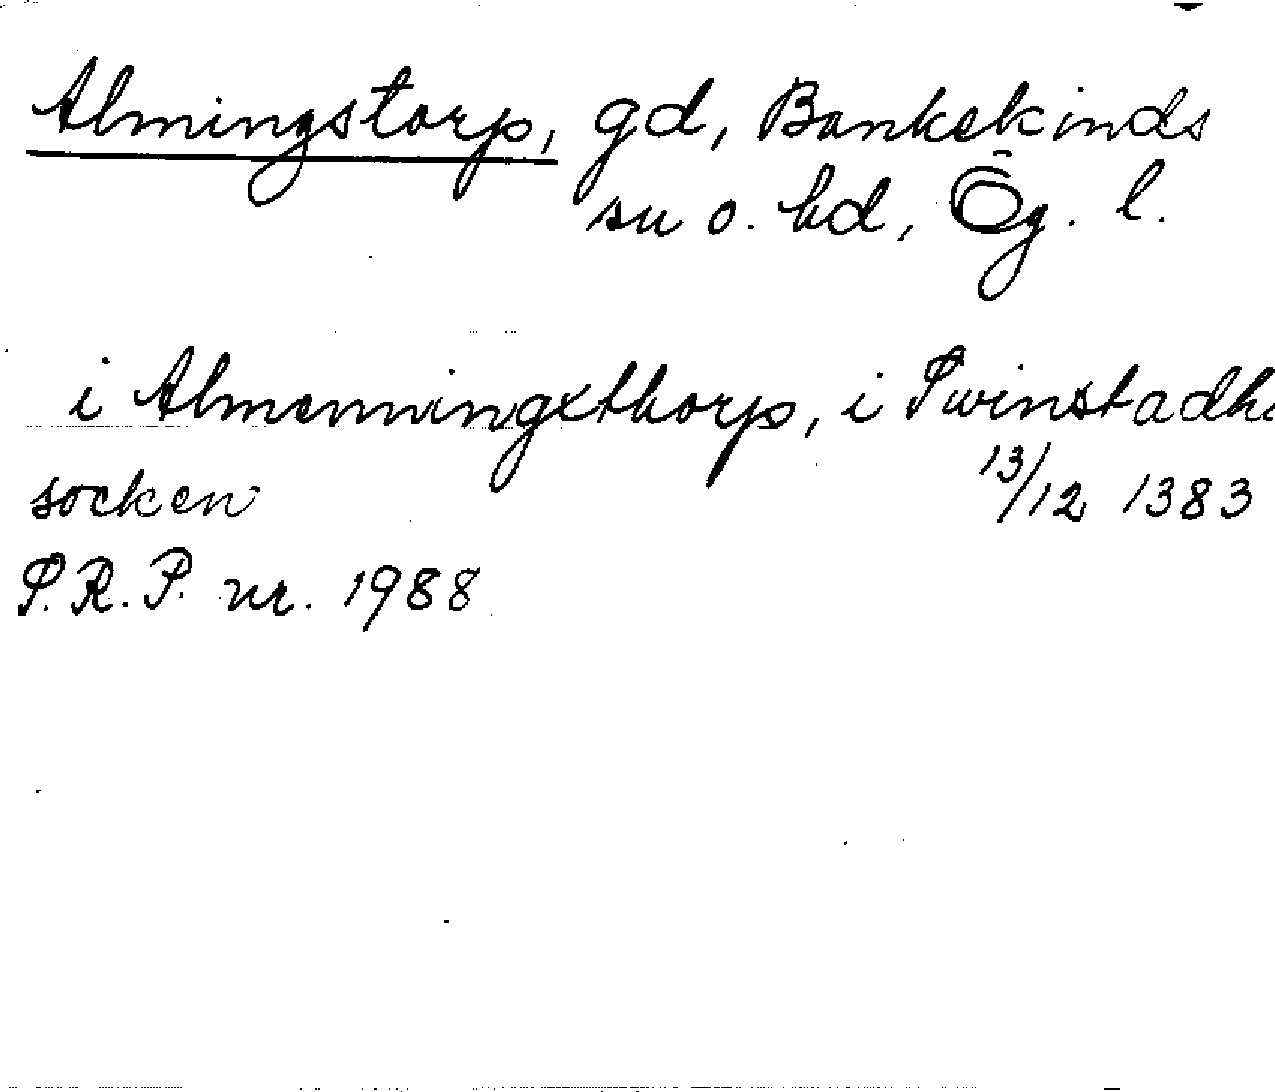 Almingstorp, gd, Bankekinds
sn o. hd, Ög. l.
i Almenningxthorp, i Swinstadha
socken 13/12 1383
S.R.P. nr. 1988